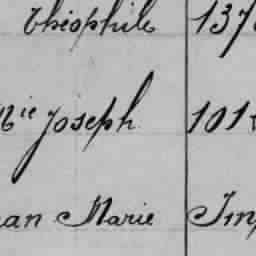 Théophile 137
Mie Joseph 101
an Marie Imp